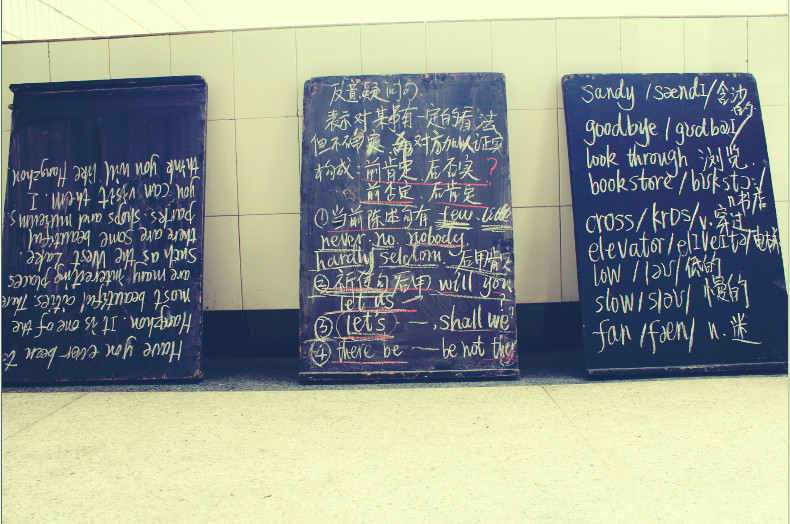 Have you ever been t
Hangzhon. It is one of the
most beautiful cities. There
are many interesting places
Such as the West Lake.
there are some beautiful
parks. shops and museums
you can visit them. I
think you will like Hangzhon
反意疑问句
表示对某事有一定的看法
但不确实 对方加以证实
构成: 前肯定, 后否定?
前否定, 后肯定
①当前陈述句有 few. little
never. no. nobody.
hardly seldom. 后用肯定
②祈使句后用 will you
let us ?
③(let's) —, shall we?
④ there be —— be not there
sandy /sændɪ/含沙的
goodbye /gʊdbaɪ/
look through 浏览.
bookstore /bʊkstɔ:/ n书店
cross/krɒs/v.穿过
elevator/elɪveɪtə/电梯
low /ləʊ/低的
slow/sləʊ/ 慢的
fan /fæn/ n.迷